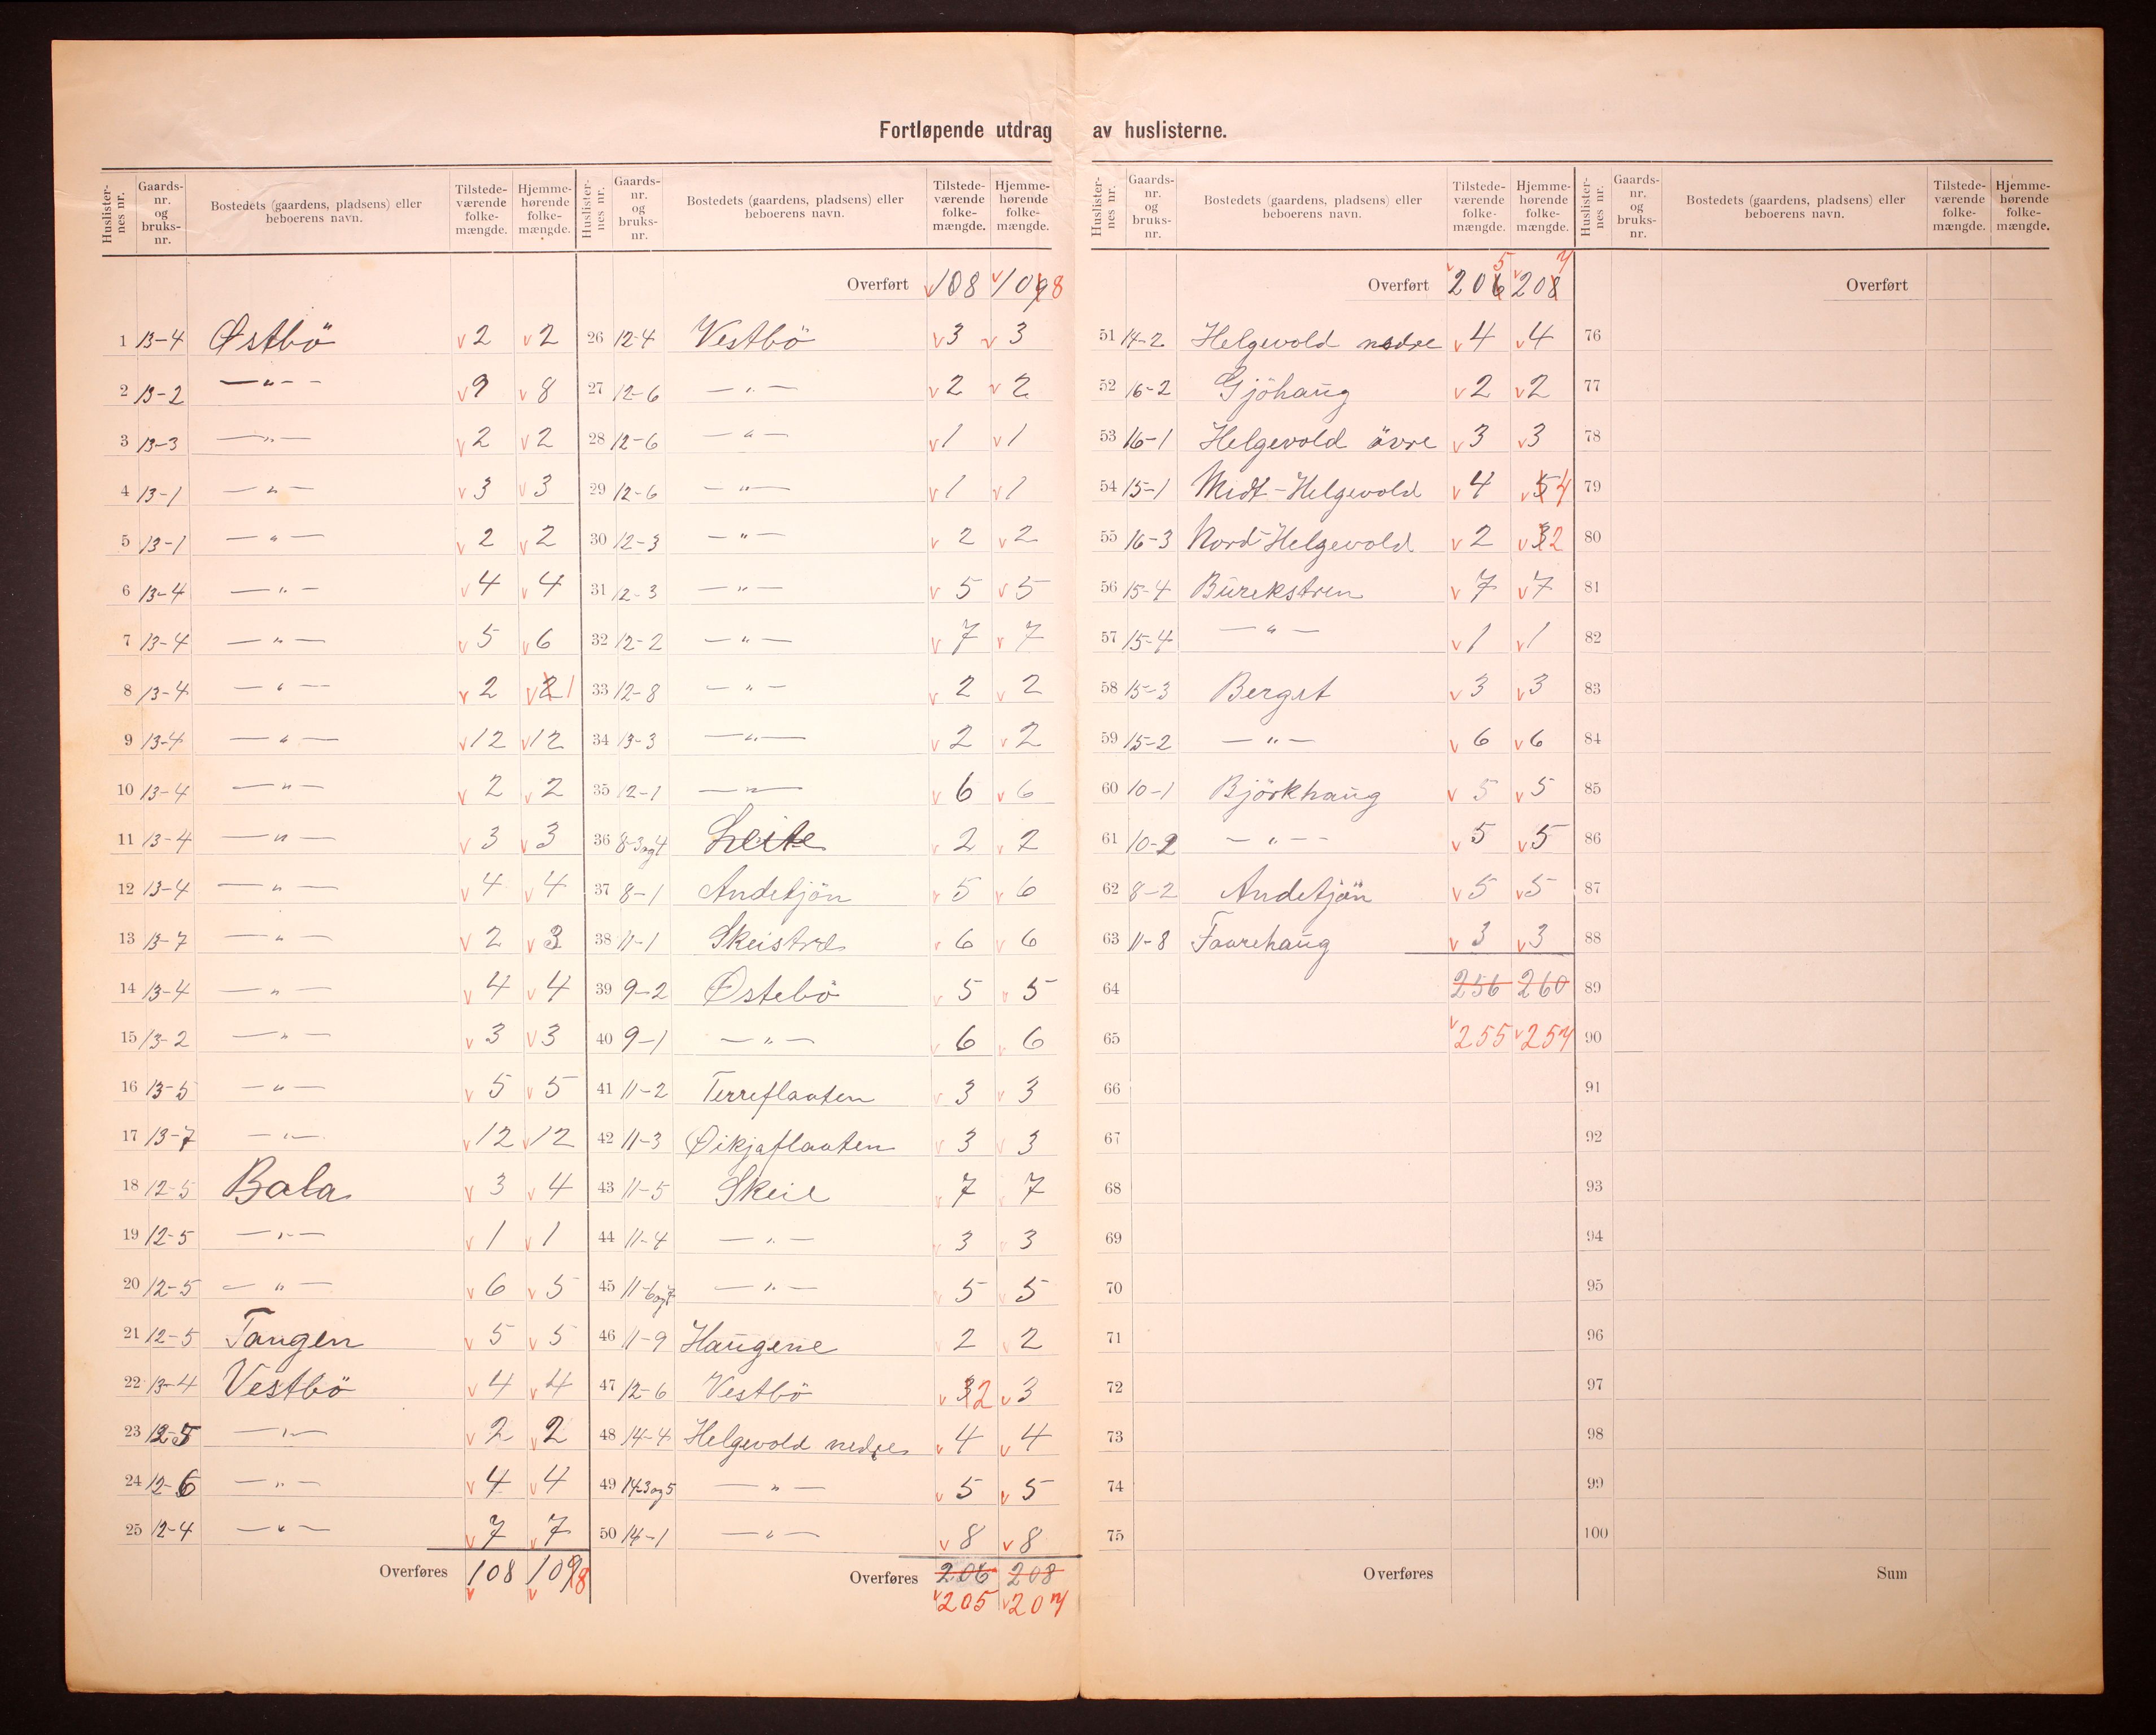 Fortløpende utdrag av huslisterne.
Huslister-nes nr. Gaards-nr. og bruks-nr. Bostedets (gaardens, pladsens) eller beboerens navn. Tilstede-værende folke-mængde. Hjemme-hørende folke-mængde.
1 13-4 Østbö 2 2
2 13-2 —"— 9 8
3 13-3 —"— 2 2
4 13-1 —"— 3 3
5 13-1 —"— 2 2
6 13-4 —"— 4 4
7 13-4 —"— 5 6
8 13-4 —"— 2 2 1
9 13-4 —"— 12 12
10 13-4 —"— 2 2
11 13-4 —"— 3 3
12 13-4 —"— 4 4
13 13-7 —"— 2 3
14 13-4 —"— 4 4
15 13-2 —"— 3 3
16 13-5 —"— 5 5
17 13-7 —"— 12 12
18 12-5 Bala 3 4
19 12-5 —"— 1 1
20 12-5 —"— 6 5
21 12-5 Tangen 5 5
22 13-4 Vestbö 4 4
23 12-5 —"— 2 2
24 12-6 —"— 4 4
25 12-4 —"— 7 7
Overføres 108 109 8
Huslister-nes nr. Gaards-nr. og bruks-nr. Bostedets (gaardens, pladsens) eller beboerens navn. Tilstede-værende folke-mængde. Hjemme-hørende folke-mængde.
Overført 108 109 8
26 12-4 Vestbö 3 3
27 12-6 —"— 2 2
28 12-6 —"— 1 1
29 12-6 —"— 1 1
30 12-3 —"— 2 2
31 12-3 —"— 5 5
32 12-2 —"— 7 7
33 12-8 —"— 2 2
34 13-3 —"— 2 2
35 12-1 —"— 6 6
36 8-3og4 Leite 2 2
37 8-1 Andetjön 5 6
38 11-1 Skeistre 6 6
39 9-2 Østebö 5 5
40 9-1 —"— 6 6
41 11-2 Terreflaaten 3 3
42 11-3 Øikjaflaaten 3 3
43 11-5 Skeie 7 7
44 11-4 —"— 3 3
45 11-6og7 —"— 5 5
46 11-9 Haugene 2 2
47 12-6 Vestbö 3 2 3
48 14-4 Helgevold nedre 4 4
49 14-3og5 —"— 5 5
50 14-1 —"— 8 8
Overføres 206 208
205 207
Huslister-nes nr. Gaards-nr. og bruks-nr. Bostedets (gaardens, pladsens) eller beboerens navn. Tilstede-værende folke-mængde. Hjemme-hørende folke-mængde.
5 7
Overført 206 208
51 14-2 Helgevold nedre 4 4
52 16-2 Gjöhaug 2 2
53 16-1 Helgevold övre 3 3
54 15-1 Midt-Helgevold 4 5 4
55 16-3 Nord-Helgevold 2 3 2
56 15-4 Burekstren 7 7
57 15-4 —"— 1 1
58 15-3 Berget 3 3
59 15-2 —"— 6 6
60 10-1 Björkhaug 5 5
61 10-2 —"— 5 5
62 8-2 Andetjön 5 5
63 11-8 Faarehaug 3 3
64 256 260
65 255 257
66
67
68
69
70
71
72
73
74
75
Overføres
Huslister-nes nr. Gaards-nr. og bruks-nr. Bostedets (gaardens, pladsens) eller beboerens navn. Tilstede-værende folke-mængde. Hjemme-hørende folke-mængde.
Overført
76
77
78
79
80
81
82
83
84
85
86
87
88
89
90
91
92
93
94
95
96
97
98
99
100
Sum